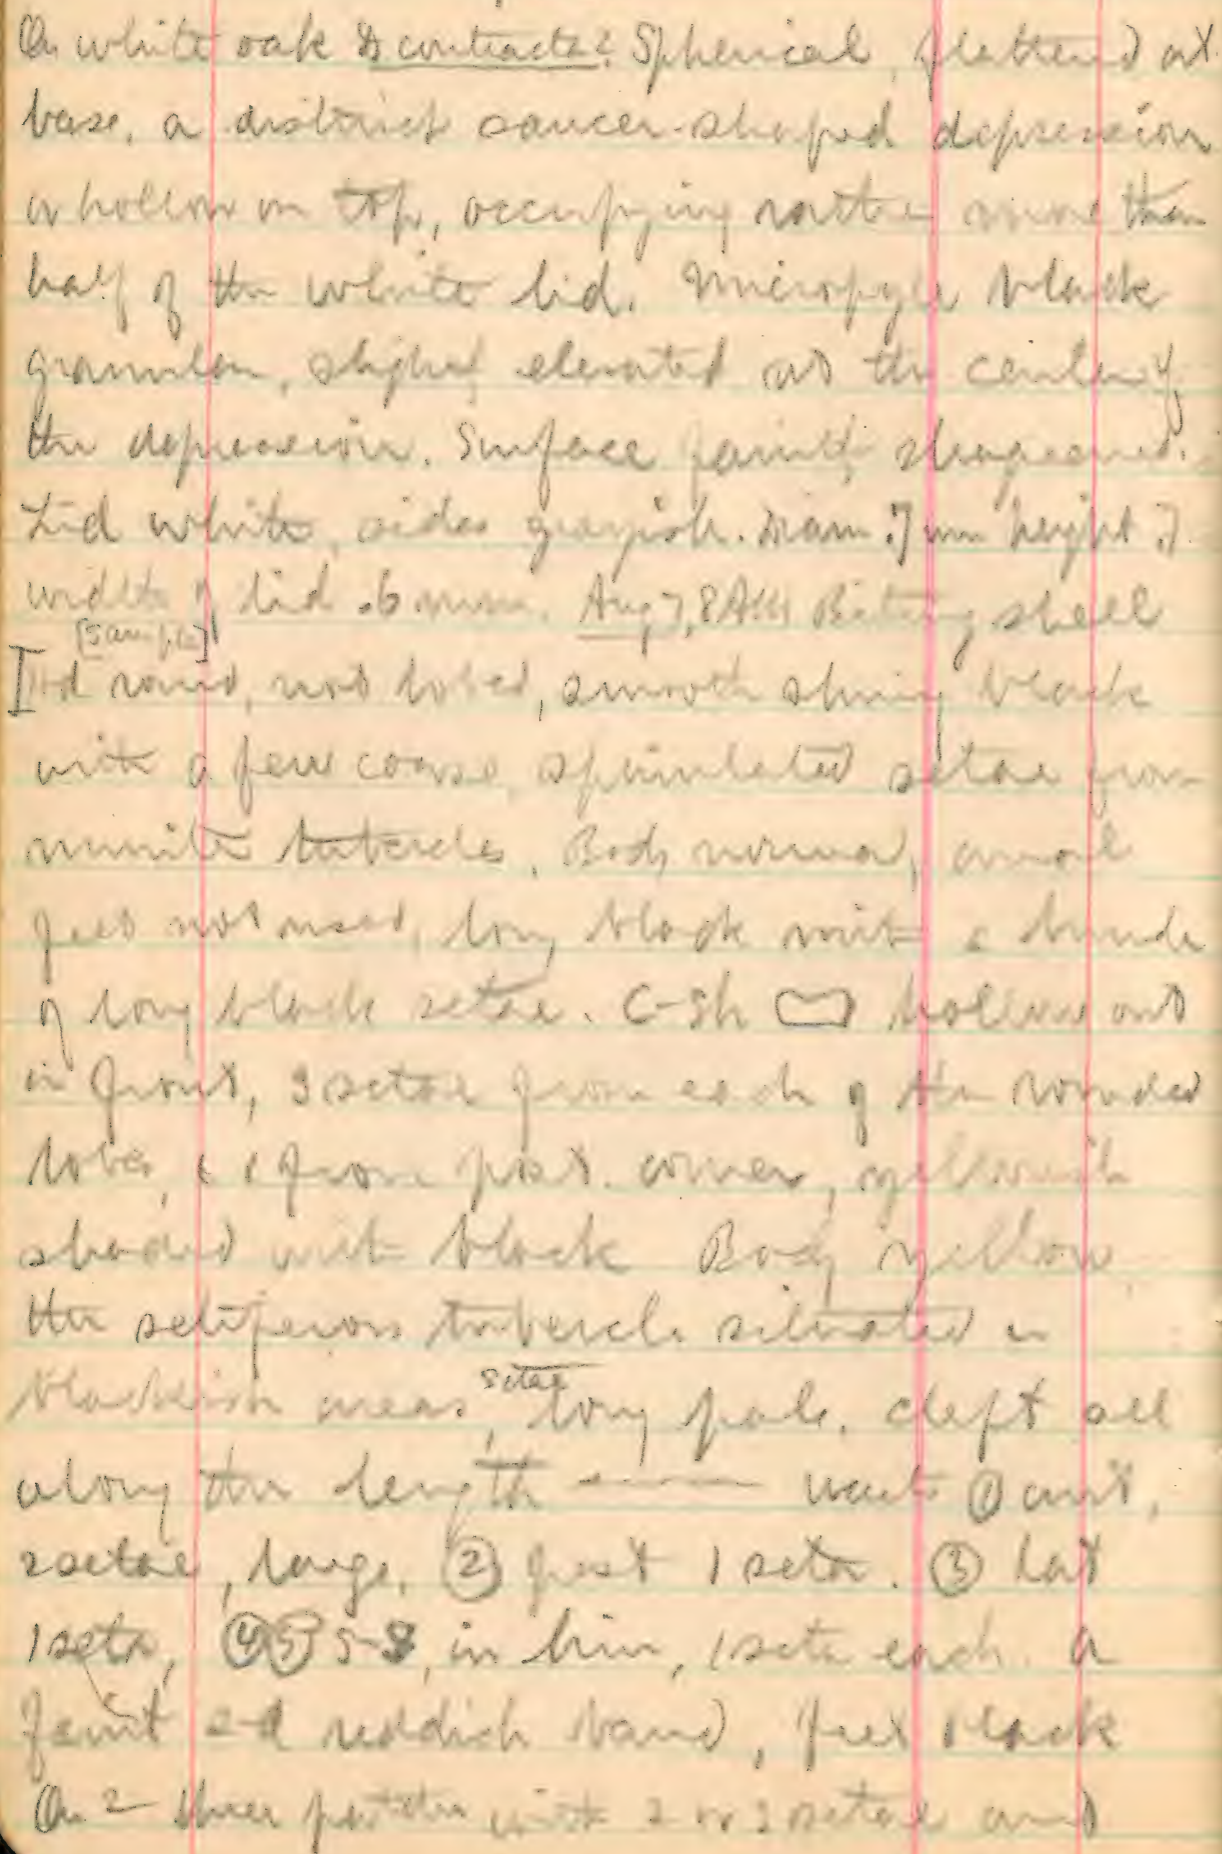 On white oak D. contracta? Spherical, flattened at
base, a distinct saucer-shaped depression
or hollow on top, occupying rather more than
half of the white lid. Micropyle black
granular, slightly elevated at the center of
the depression. Surface faintly shagreened.
Lid white, sides grayish. Diam .7 mm height .7
width of lid .6 mm. Aug 7, 8 AM Biting shell
[Sample]
I Hd round, not lobed, smooth shiny black
with a few coarse spinulated setae from
minute tubercles. Body normal, anal
feet not used, long black with a bunch
of long black setae. C-sh hollow out
in front, 3 setae from each of the rounded
lobes, & 1 from post. corner, yellowish
shaded with black Body yellow,
the setiferous tubercles situated in
blackish areas, setae long pale, cleft all
along the length — warts ① ant,
2 setae, large, ② post 1 seta. ③ lat
1 seta, ④⑤ 5-8, in line, 1 seta each. A
faint s-d reddish band, feet black
On 2 three patches with 2 or 3 setae and